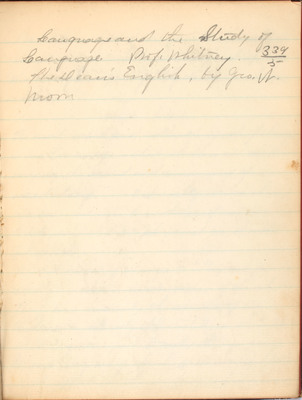 Language and the Study of
Language Prof. Whitney. 339/5
The Dean's English, by Geo. W.
Moon.